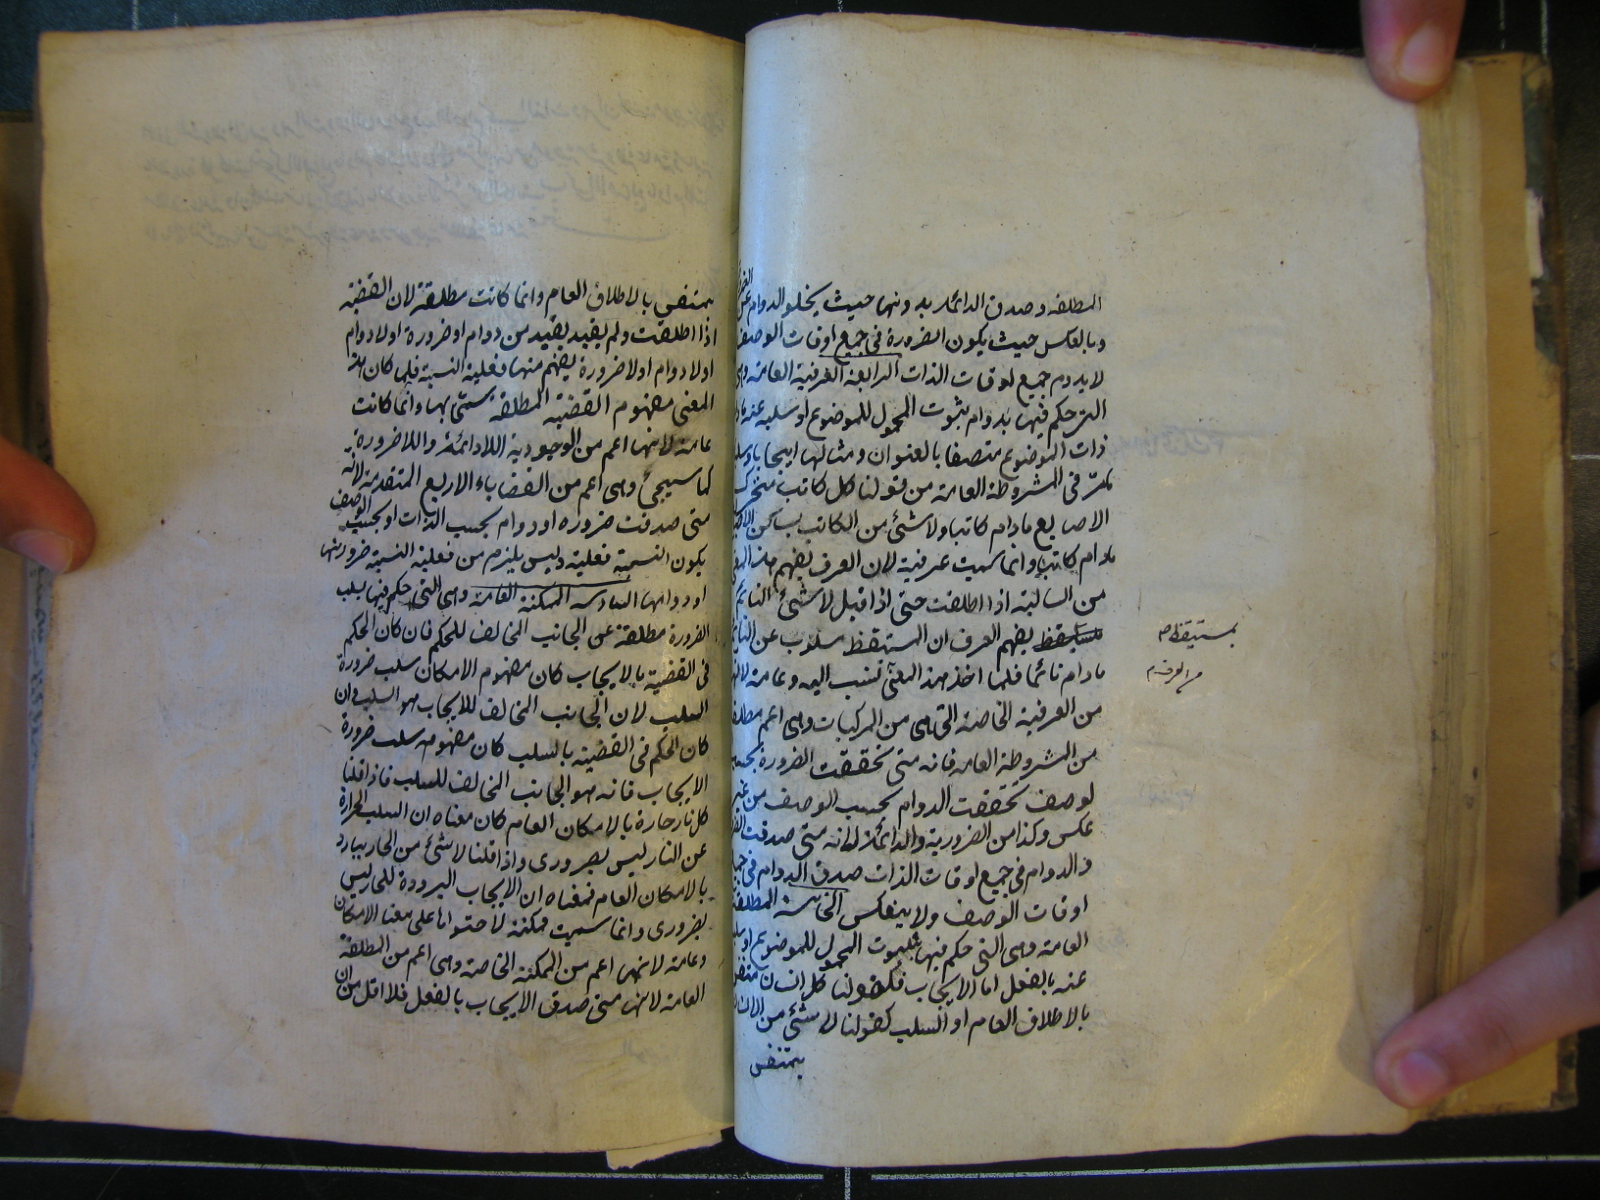 المطلقة وصدق الدائمة بدونها حيث يخلو الدوام عن
وبالعكس حيث يكون الضرورة في جميع اوقات الوصف
لا يدوم جميع اوقات الذات الرابعة العرفية العامة وهي
التي حكم فيها بدوام ثبوت المحمول للموضوع او سلبه عنه
ذات الموضوع متصفا بالعنوان ومثالها ايجابا وسلبا
مر في المشروطة العامة من قولنا كل كاتب متحرك
الاصابع مادام كاتبا ولا شئ من الكاتب بساكن
مادام كاتبا وانما سميت عرفية لان العرف يفهم هذا المعنى
من السالبة اذا اطلقت حتى اذا قيل لا شئ من النائم
بمستيقظ يفهم العرف ان المستيقظ مسلوب عن النائم
مادام نائما فلما اخذ هذا المعنى نسب اليه وعامة لانها
من العرفية الخاصة التي هي من المركبات وهي اعم مطلقا
من المشروطة العامة فانه متى تحققت الضرورة بحسب
لوصف تحققت الدوام بحسب الوصف من غير
عكس وكذا من الضرورية والدائمة لانه متى صدقت
والدوام في جميع اوقات الذات صدق الدوام في جميع
اوقات الوصف ولا ينعكس الخامسة المطلقة
العامة وهي التي حكم فيها بثبوت المحمول للموضوع او سلبه
عنه بالفعل اما الايجاب فكقولنا كل انسان متنفس
بالاطلاق العام او السلب كقولنا لا شئ من الانسان
بمتنفس
بمستيقظ
بمتنفس بالاطلاق العام وانما كانت مطلقة لان القضية
اذا اطلقت ولم يقيد بقيد من دوام او ضرورة او لادوام
او لا دوام او لا ضرورة يفهم منها فعلية النسبة فلما كان هذا
المعنى مفهوم القضية المطلقة تسمى بها وانما كانت
عامة لانها اعم من الوجودية اللادائمة واللاضرورة
كما سيجئ وهي اعم من القضاياء الاربع المتقدمة لانه
متى صدقت ضرورة او دوام بحسب الذات او بحسب الوصف
يكون النسبة فعلية وليس يلزم من فعلية النسبة ضرورتها
او دوامها السادسة الممكنة العامة وهي التي حكم فيها بسلب
الضرورة مطلقة عن الجانب المخالف للحكم فان كان الحكم
في القضية بالايجاب كان مفهوم الامكان سلب ضرورة
السلب لان الجانب المخالف للايجاب هو السلب وان
كان الحكم في القضية بالسلب كان مفهومه سلب ضرورة
الايجاب فانه هو الجانب المخالف للسلب فاذا قلنا
كل نار حارة بالامكان العام كان معناه ان السلب الحرارة
عن النار ليس بضروري واذا قلنا لا شئ من الحار ببارد
بالامكان العام فمعناه ان الايجاب البرودة للحار ليس
بضروري وانما سميت ممكنة لاحتوائها على معنا الامكان
وعامة لانها اعم من الممكنة الخاصة وهي اعم من المطلقة
العامة لانها متى صدق الايجاب بالفعل فلا اقل من ان